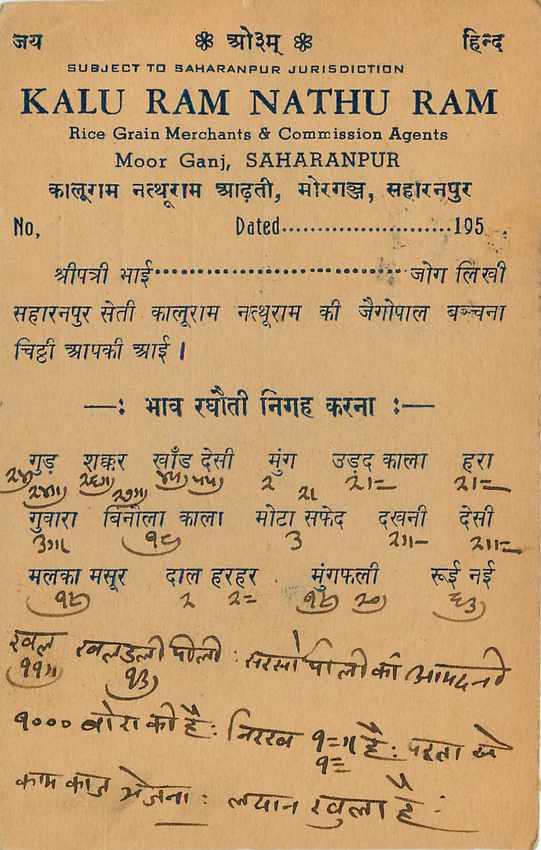 जय ओ३म् हिन्द
SUBJECT TO SAHARANPUR JURISDICTION
KALU RAM NATHU RAM
Rice Grain Merchants & Commission Agents
Moor Ganj, SAHARANPUR
कालूराम नत्थूराम आढ़ती, मोरगञ्ज, सहारनपुर
No, Dated........................195
श्रीपत्री भाई........................जोग लिखी
सहारनपुर सेती कालूराम नत्थूराम की जैगोपाल बञ्चना
चिट्ठी आपकी आई।
—: भाव रघौती निगह करना :—
गुड़ शक्कर खाँड देसी मुंग उड़द काला हरा
२ २। २।= २।=
गुवारा बिनौला काला मोटा सफेद दखनी देसी
१८) ३ २॥– २॥=
मलका मसूर दाल हरहर मुंगफली रूई नई
१८) २ २= १८) २०) ६३)
खल खलडली पीली : सरसों पीली की आमदनी
११॥) १३)
१००० बोरा की है : निरख १=॥ है : पड़ता से
१=
काम काज भेजना : लदान खुला है :